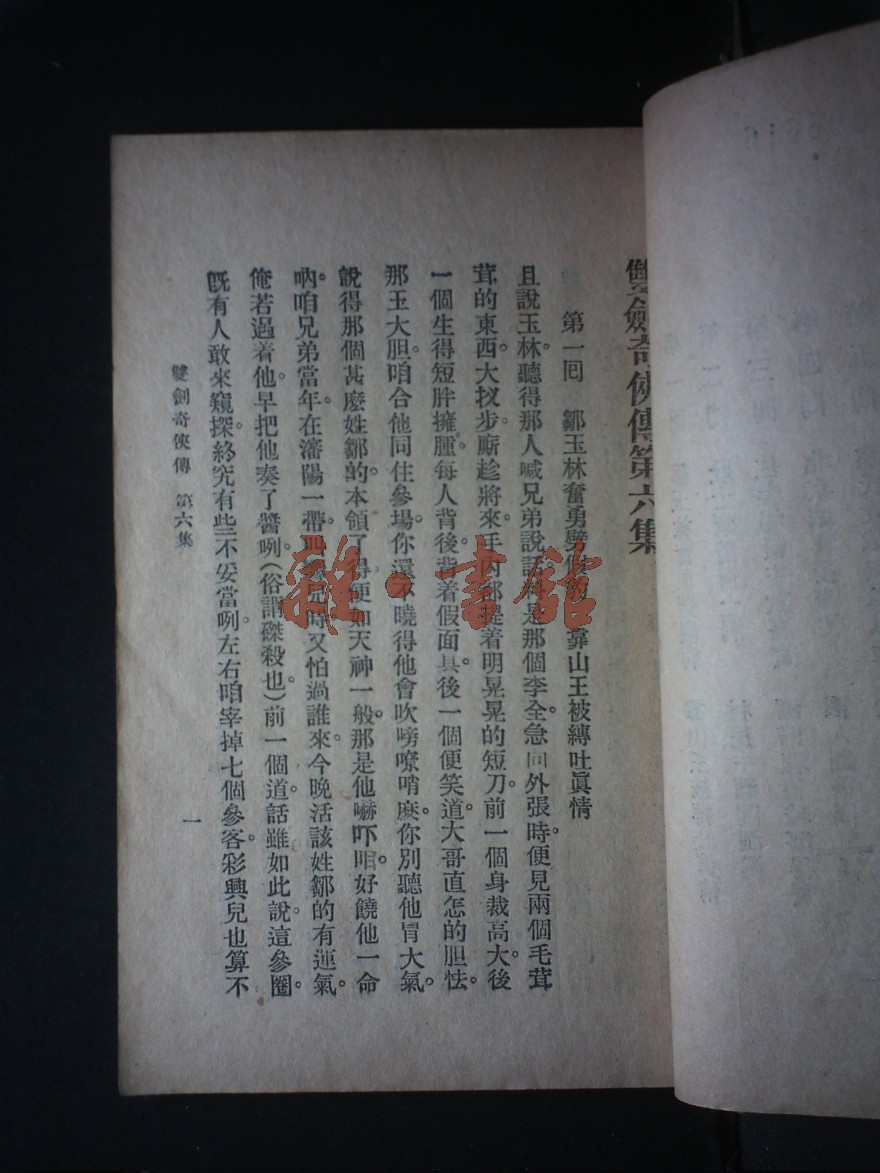 雙劍奇俠傳第六集
第一回　鄒玉林奮勇劈假　靠山王被縛吐眞情
且說玉林。聽得那人喊兄弟說話。是那個李全。急向外張時。便見兩個毛茸
茸的東西。大扠步厮趁將來。手內都提着明晃晃的短刀。前一個身裁高大。後
一個生得短胖擁腫。每人背後。背着假面具。後一個便笑道。大哥直怎的胆怯。
那王大胆。咱合他同住參場。你還不曉得他會吹嗙嘹哨麽。你別聽他冒大氣。
說得那個甚麼姓鄒的。本領了得。便如天神一般。那是他嚇吓咱。好饒他一命
吶。咱兄弟當年。在瀋陽一帶。時又怕過誰來。今晚活該姓鄒的有運氣。
俺若過着他。早把他奏了醬咧。(俗謂磔殺也)前一個道。話雖如此說。這參圈。
旣有人敢來窺探。終究有些不妥當咧。左右咱宰掉七個參客。彩興兒也算不
雙劍奇俠傳　第六集
一
雜·書館